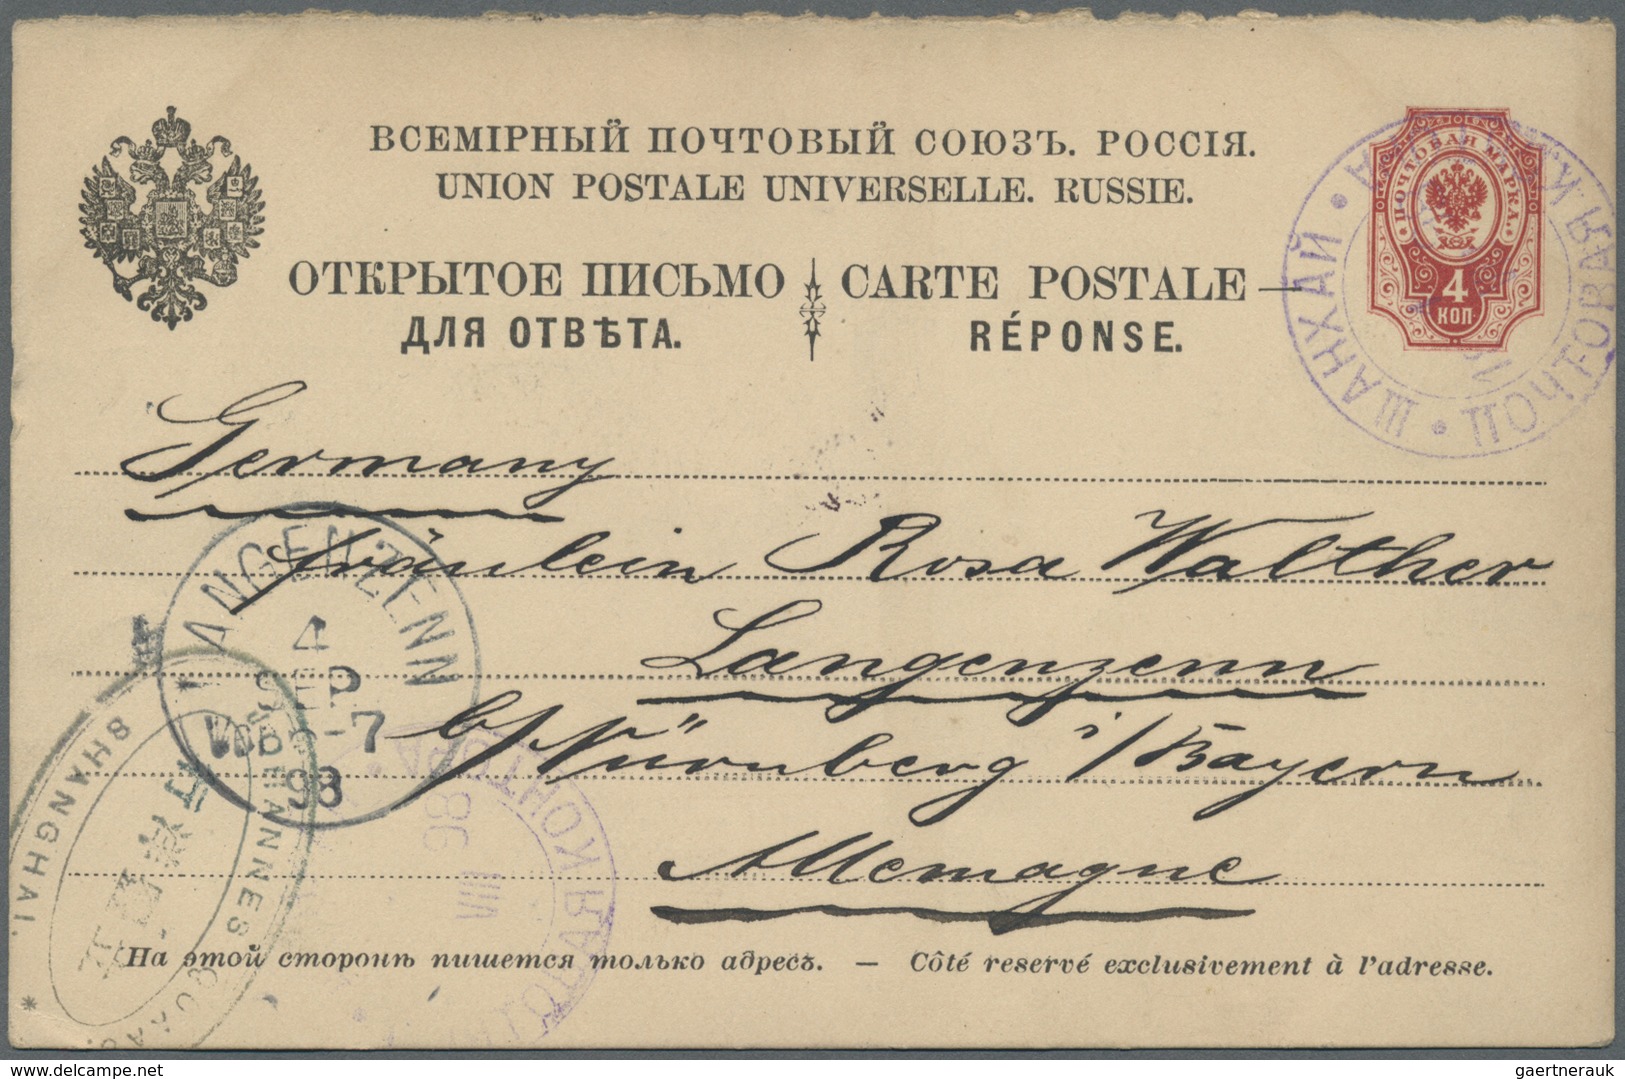 ВСЕМІРНЫЙ ПОЧТОВЫЙ СОЮЗЪ. РОССІЯ.
UNION POSTALE UNIVERSELLE. RUSSIE.
ОТКРЫТОЕ ПИСЬМО
ДЛЯ ОТВѢТА.
CARTE POSTALE
RÉPONSE.
ПОЧТОВАЯ МАРКА
4
КОП.
ШАНХАЙ • ПОЧТОВАЯ
Germany
Fräulein Rosa Walther
Langenzenn
b/Nürnberg i/Bayern
Allemagne
LANGENZENN
4
SEP
6-7
98
ПОЧТОВАЯ КОНТОРА
VIII
98
SHANGHAI.
На этой сторонѣ пишется только адресъ. — Côté reservé exclusivement à l'adresse.
www.delcampe.net
gaertnerauk